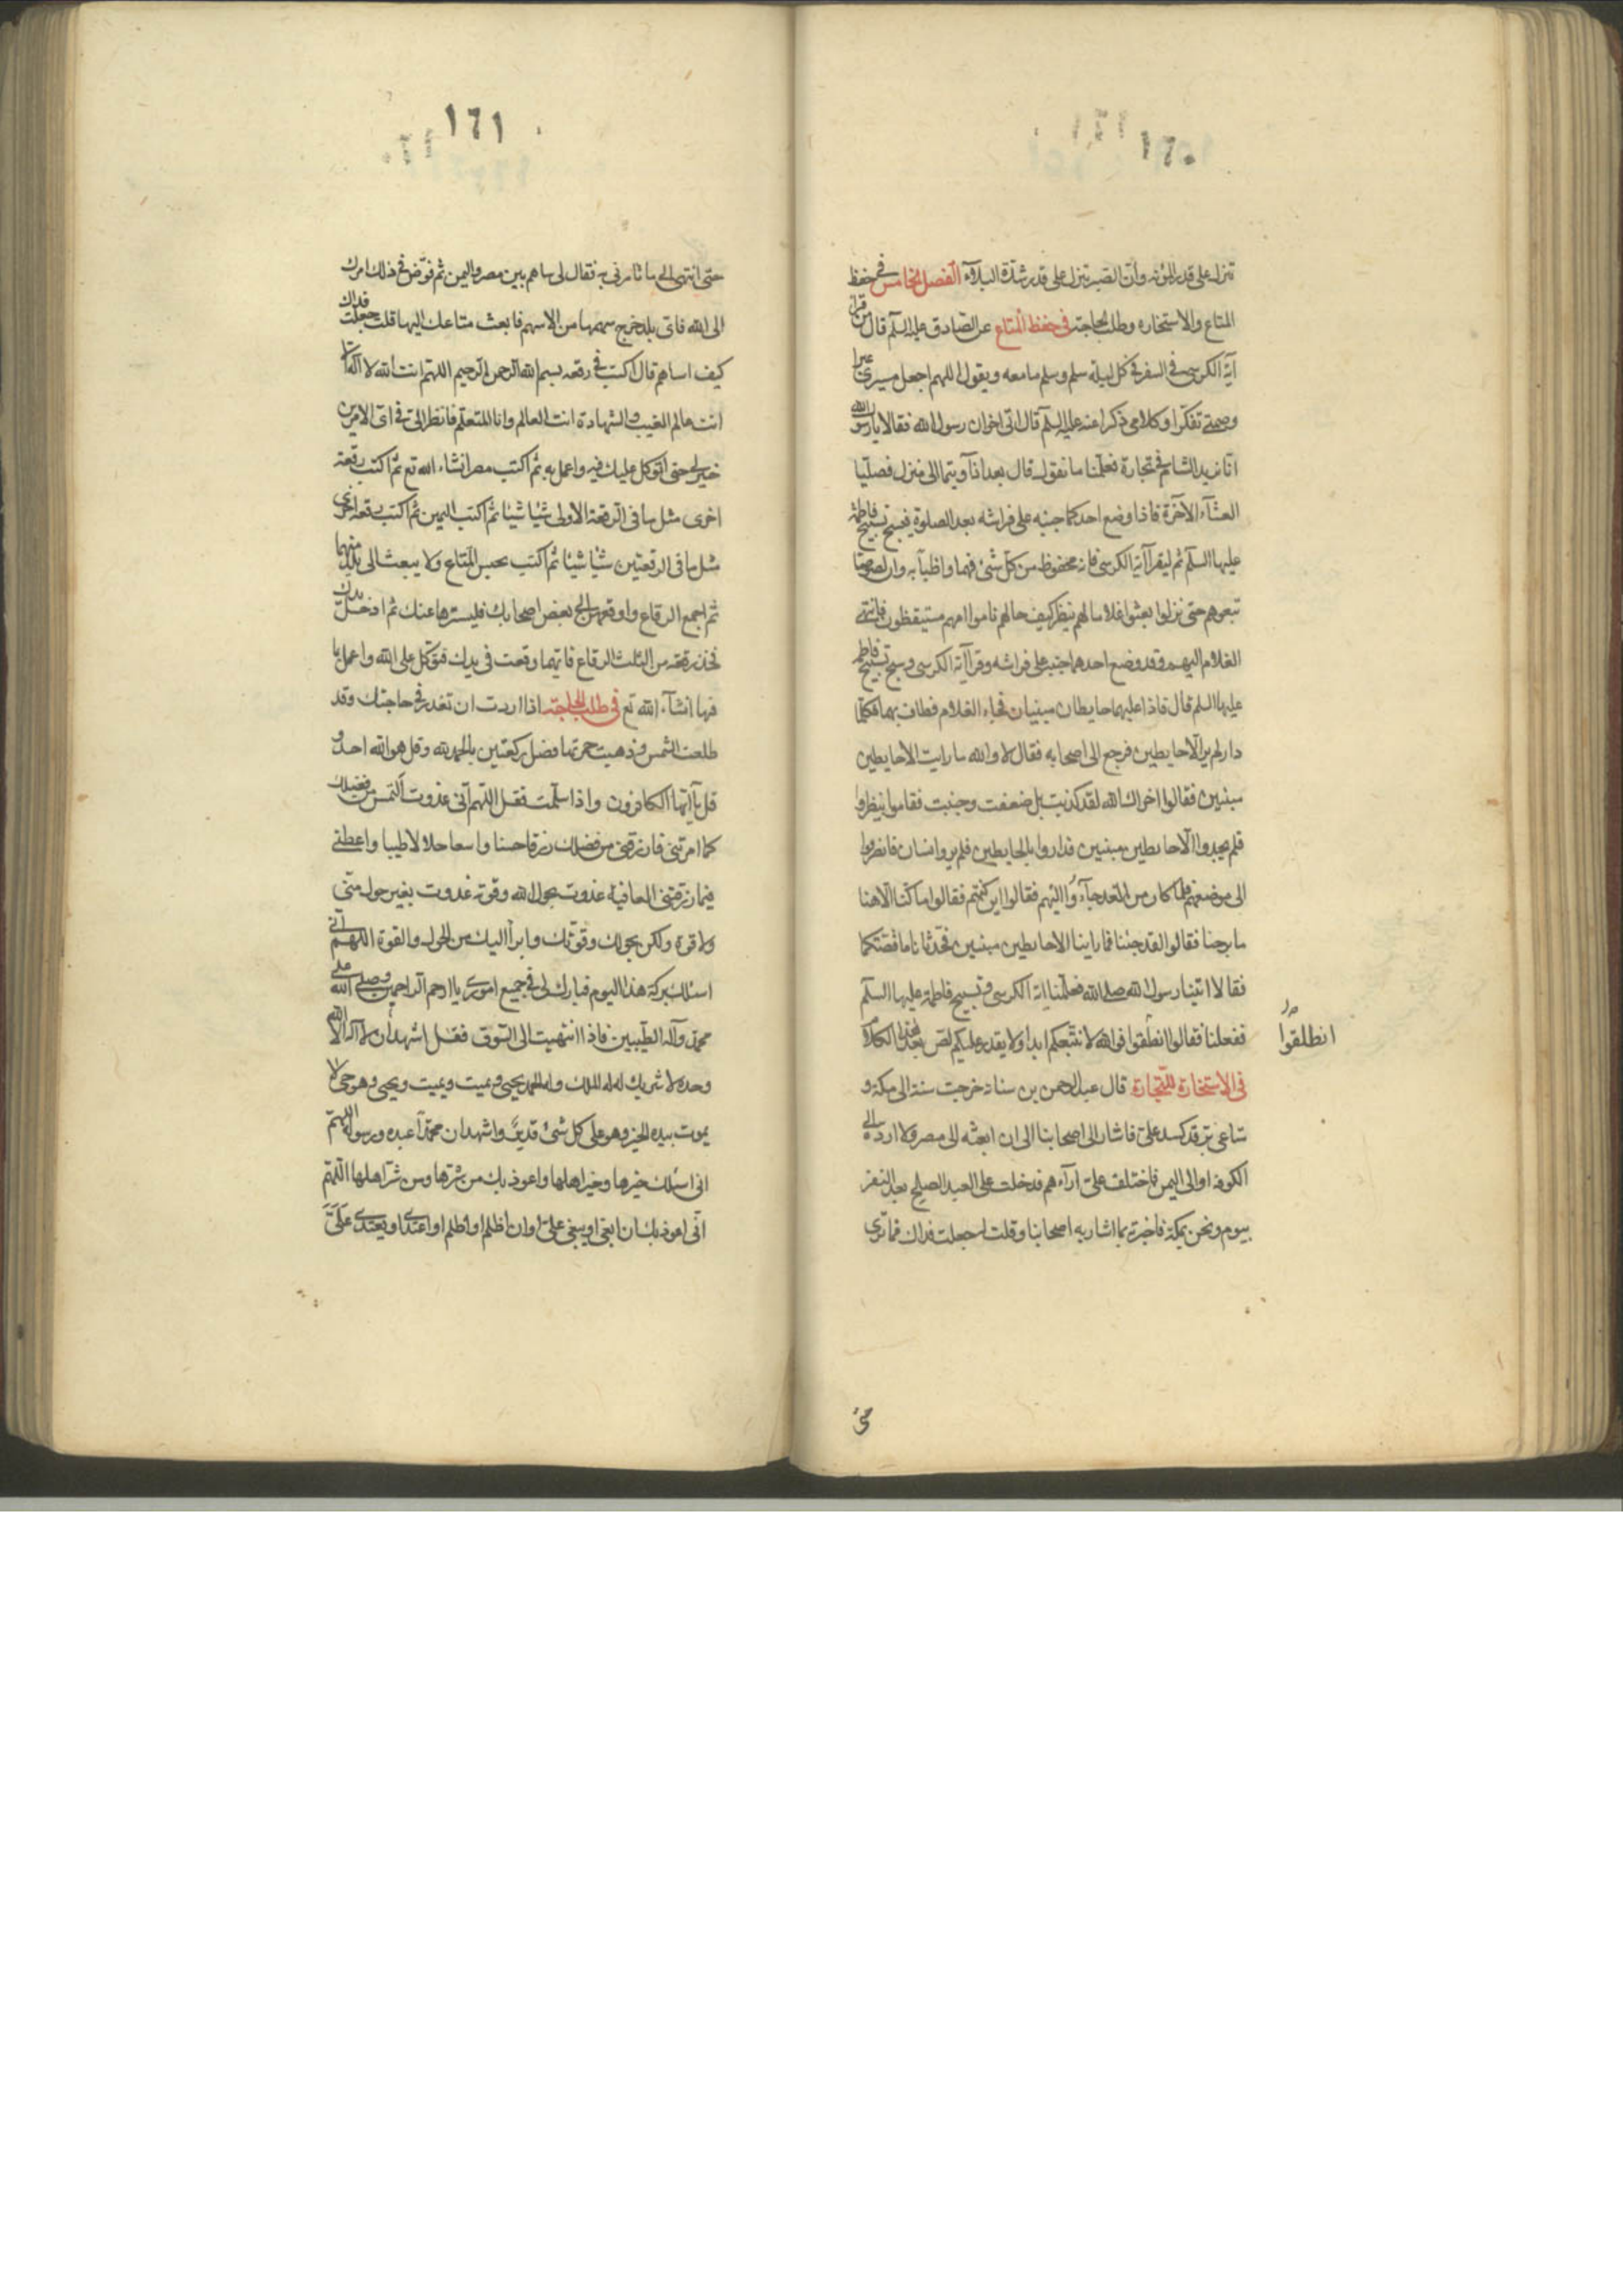 ١٦٠
تنزل على قدر المؤنه وان الصبر تنزل على قدر شدة البلاء الفصل الخامس في حفظ
المتاع والاستخاره وطلب الحاجته في حفظ المتاع عن الصادق عليه السلم قال من قرأ
آية الكرسي في السفر في كل ليلة سلم وسلم ما معه ويقول اللهم اجعل مسيري عبرا
وصمتي تفكرا وكلامي ذكرا عنه عليه السلم قال اتى اخوان رسول الله فقالا يا رسول الله
انا نريد الشام في تجارة فعلمنا ما نقول قال بعد اذ آويتما الى منزل فصليا
العشاء الآخرة فاذا وضع احدكما جنبه على فراشه بعد الصلوة فيسبح تسبيح فاطمة
عليها السلم ثم ليقرأ آية الكرسي فانه محفوظ من كل شئ فهما واظبا به وان لصوصا
تبعوهم حتى نزلوا بعثوا غلاما لهم ينظر كيف حالهم ناموا امهم مستيقظون فانتهى
الغلام اليهم وقد وضع احدهما جنبه على فراشه وقرأ آية الكرسي وسبح تسبيح فاطمة
عليها السلم قال فاذا عليهما حايطان مبنيان فجاء الغلام فطاف بهما فكلما
دار لم ير الا حايطين فرجع الى اصحابه فقال لا والله ما رايت الا حايطين
مبنيين فقالوا اخزاك الله لقد كذبت بل ضعفت وجبنت فقاموا ينظروا
فلم يجدوا الا حايطين مبنيين فداروا بالحايطين فلم يروا انسان فانصرفوا
الى موضعهم فلما كان من الغد جاؤا اليهم فقالوا اين كنتم فقالوا ما كنا الا هنا
ما برحنا فقالوا لقد جئنا فما راينا الا حايطين مبنيين فحدثانا ما قصتكما
فقالا اتينا رسول الله صلى الله فعلمنا اية الكرسي وتسبيح فاطمة عليها السلم
ففعلنا فقالوا انطلقوا فوالله لا نتبعكم ابدا ولا يقدر عليكم لص بعد هذا الكلام
انطلقوا
في الاستخارة للتجارة قال عبد الرحمن بن سنانه خرجت سنة الى مكة و
متاعي بز قد كسد علي فاشار الى اصحابنا الى ان ابعثه الى مصر ولا ارده الى
الكوفه او الى اليمن فاختلف علي آراءهم فدخلت على العبد الصلح بعد النفر
بيوم ونحن بمكة فاخبرته بما اشار به اصحابنا وقلت له جعلت فداك فما ترى
حتى
١٦١
حتى انتهي الى ما تامرني به فقال لي ساهم بين مصر واليمن ثم فوض في ذلك امرك
الى الله فاي بلد خرج سهمها من الاسهم فابعث متاعك اليها قلت جعلت فداك
كيف اساهم قال اكتب في رقعه بسم الله الرحمن الرحيم اللهم انت الله لا اله الا
انت عالم الغيب والشهادة انت العالم وانا المتعلم فانظر الي في اي الامرين
خير لي حتى اتوكل عليك فيه واعمل به ثم اكتب مصر انشاء الله تع ثم اكتب رقعة
اخرى مثل ما في الرقعة الاولى شيئا شيئا ثم اكتب اليمن ثم اكتب رقعة اخرى
مثل ما في الرقعتين شيئا شيئا ثم اكتب يحبس المتاع ولا يبعث الى بلد منهما
ثم اجمع الرقاع وادفعهن الى بعض اصحابك فليسترها عنك ثم ادخل يدك
فخذ رقعة من الثلث الرقاع فايهما وقعت في يدك فتوكل على الله واعمل بما
فيها انشاء الله تع في طلب الحاجته اذا اردت ان تغدر في حاجتك وقد
طلعت الشمس وذهبت حمرتها فصل ركعتين بالحمد لله وقل هو الله احد و
قل يا ايها الكافرون واذا سلمت فقل اللهم اني غدوت التمس من فضلك
كما امرتني فارزقني من فضلك رزقا حسنا واسعا حلالا طيبا واعطني
فيما رزقتني العافية غدوت بحول الله وقوته غدوت بغير حول مني
ولا قوة ولكن بحولك وقوتك وابرأ اليك من الحول والقوة اللهم اني
اسئلك بركة هذا اليوم فبارك لي في جميع اموري يا ارحم الراحمين وصلى الله على
محمد وآله الطيبين فاذا انتهيت الى السوق فقل اشهد ان لا اله الا الله
وحده لا شريك له له الملك وله الحمد يحيي ويميت ويميت ويحيي وهو حي لا
يموت بيده الخير وهو على كل شئ قدير واشهد ان محمدا عبده ورسوله اللهم
اني اسئلك خيرها وخير اهلها واعوذ بك من شرها ومن شر اهلها اللهم
اني اعوذ بك ان ابغي او يبغى علي او ان اظلم او اظلم او اعتدي او يعتدى علي